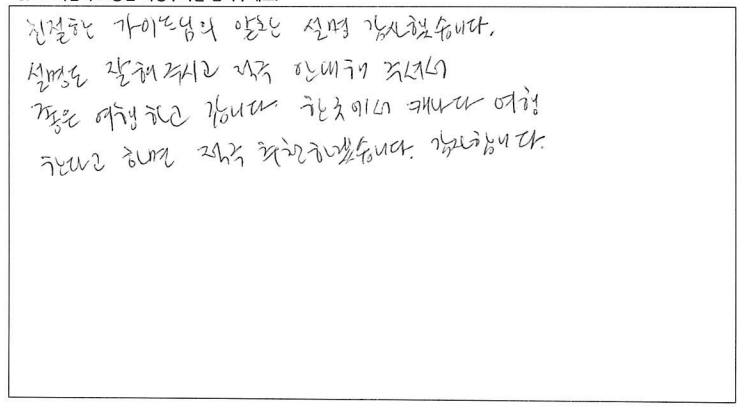 친절한 가이드님의 알찬 설명 감사했습니다.
설명도 잘해주시고 적극 안내해 주셔서
좋은 여행하고 갑니다 한국에서 캐나다 여행
한다고 하면 적극 추천하겠습니다. 감사합니다.